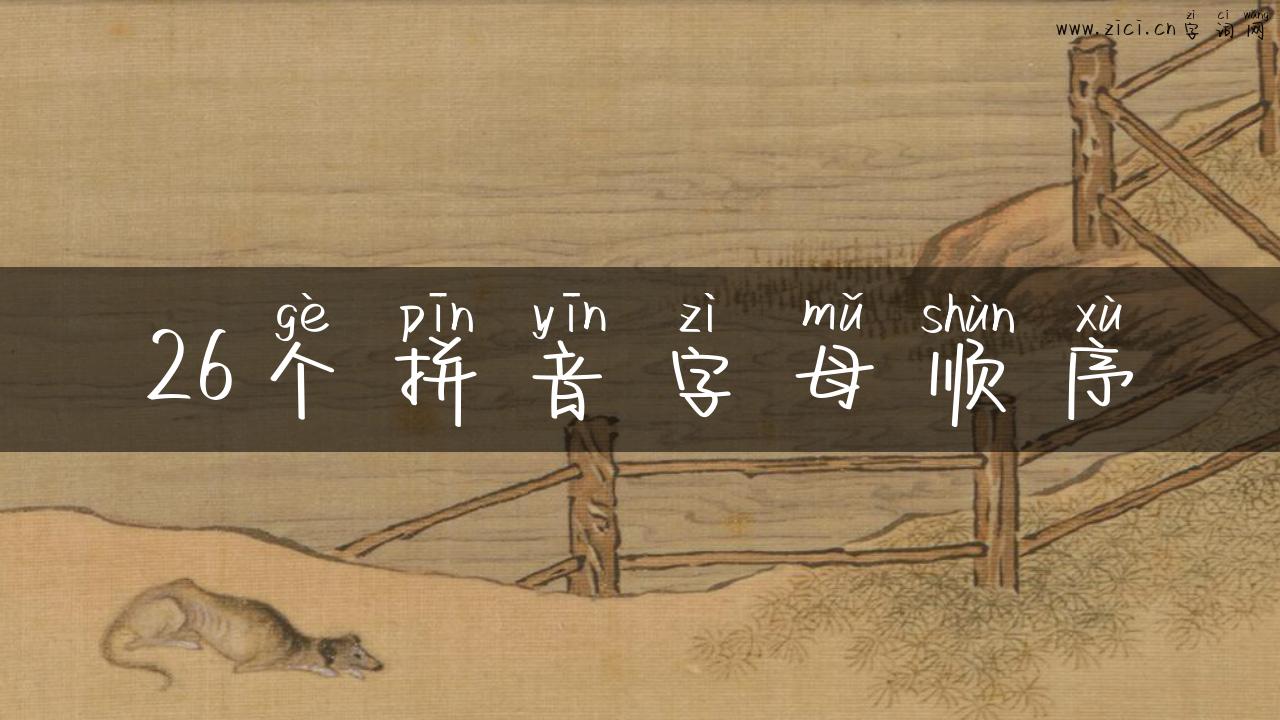 zì cí wǎng
www.zici.cn 字词网
gè pīn yīn zì mǔ shùn xù
26个拼音字母顺序